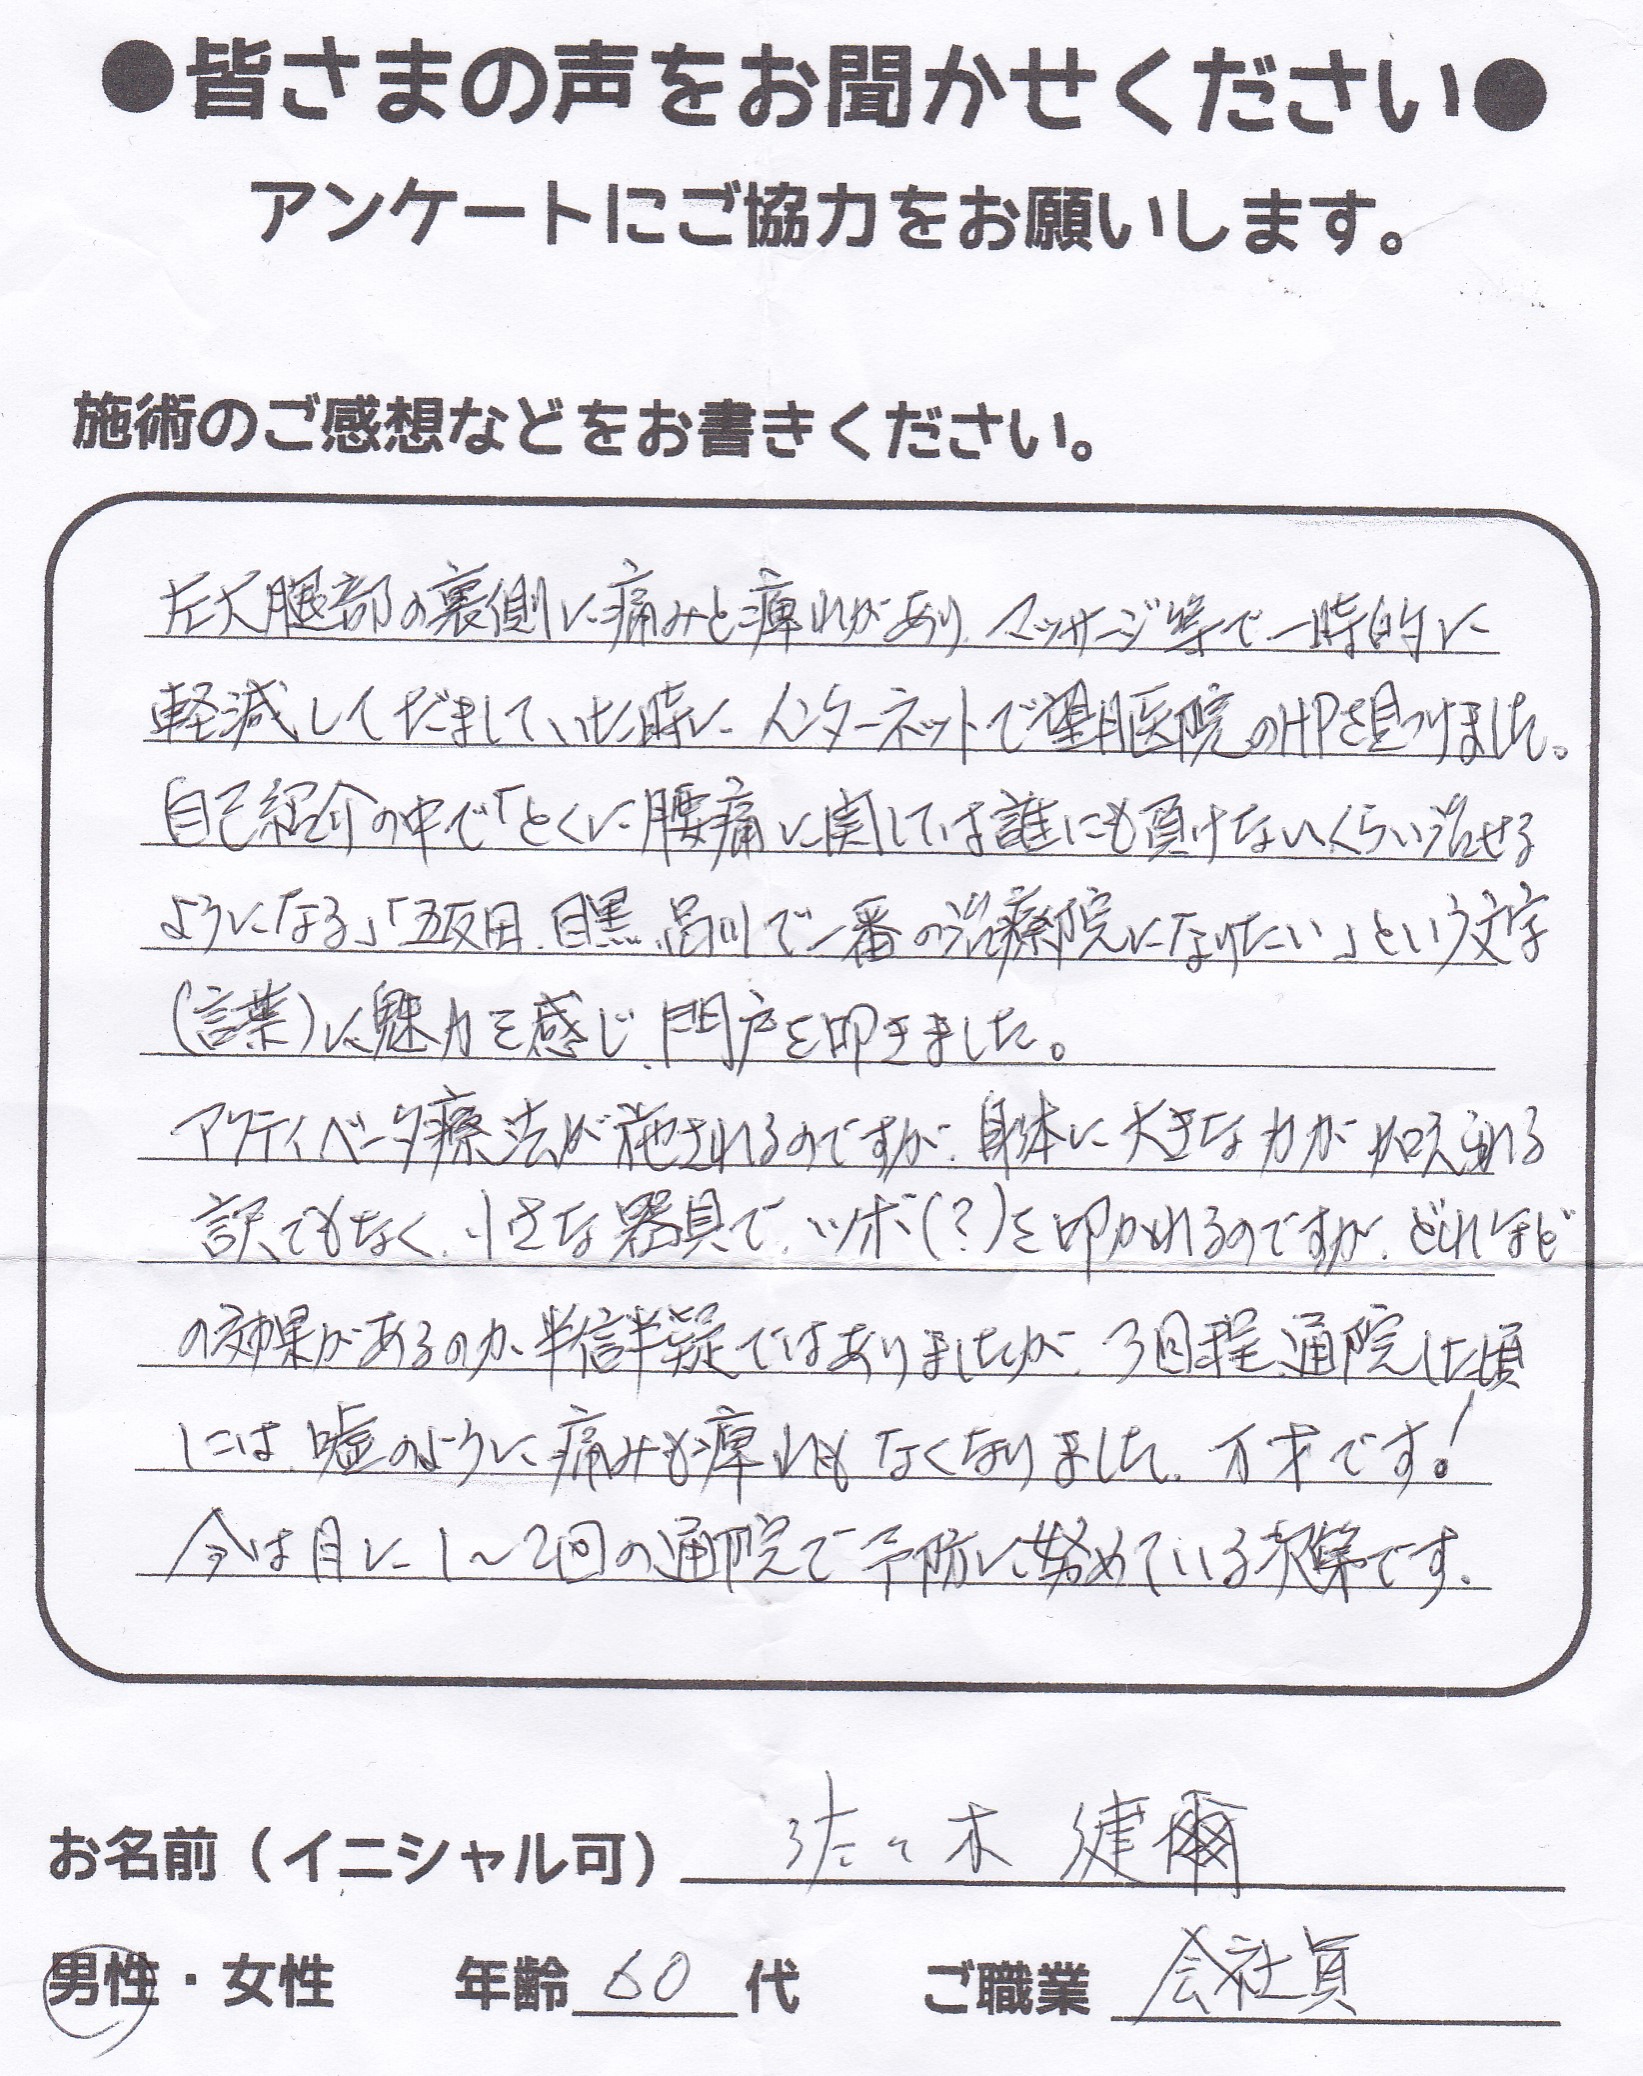 ●皆さまの声をお聞かせください●
アンケートにご協力をお願いします。
施術のご感想などをお書きください。
左大腿部の裏側に痛みと痺れがあり、マッサージ等で一時的に
軽減してだましていた時に インターネットで望月医院のHPを見つけました。
自己紹介の中で「とくに腰痛に関しては誰にも負けないくらい治せる
ようになる」「五反田、目黒、品川で一番の治療院になりたい」という文字
(言葉)に魅力を感じ、門戸を叩きました。
アクティベータ療法が施されるのですが、身体に大きな力が加えられる
訳でもなく、小さな器具で、ツボ(?)を叩かれるのですが、どれほど
の効果があるのか半信半疑ではありましたが、3回程、通院した頃
には、嘘のように痛みも痺れもなくなりました。万才です!
今は月に1~2回の通院で予防に努めている次第です。
お名前（イニシャル可） 佐々木 健爾
男性・女性 年齢 60 代 ご職業 会社員